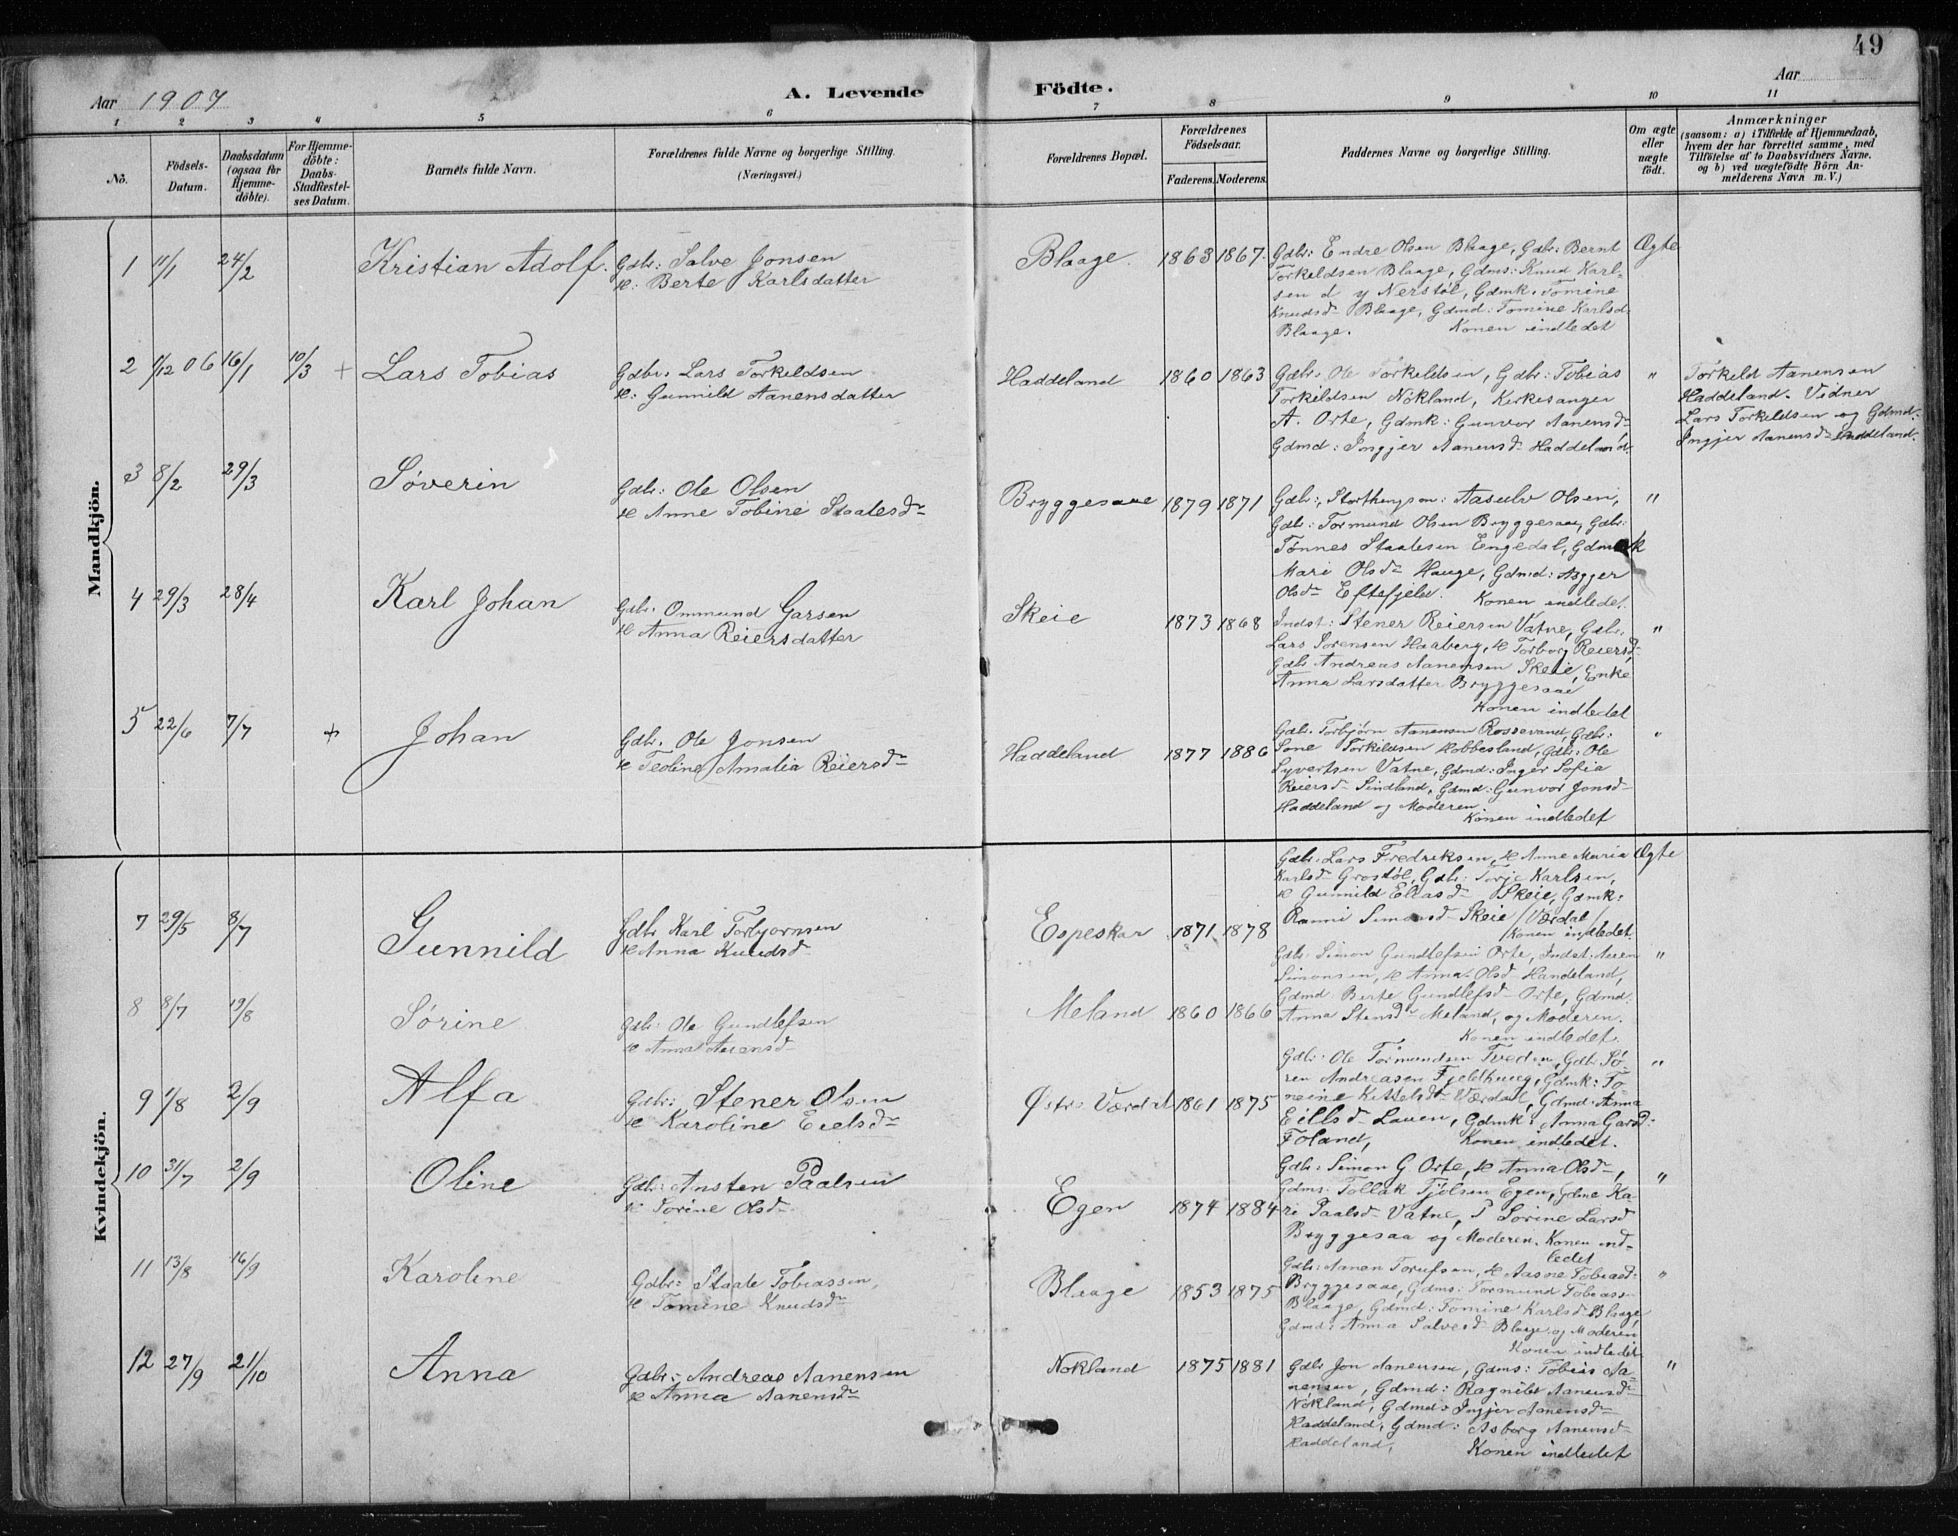 49
Aar 1907
A. Levende Födte.
Aar
1 2 3 4 5 6 7 8 9 10 11
No.
Födsels-Datum.
Daabsdatum (ogsaa for Hjemme-döbte).
For Hjemme-döbte: Daabs-Stadfæstel-ses Datum.
Barnets fulde Navn.
Forældrenes fulde Navne og borgerlige Stilling. (Næringsvei.)
Forældrenes Bopæl.
Forældrenes Födselsaar.
Faderens. Moderens.
Faddernes Navne og borgerlige Stilling.
Om ægte eller uægte födt.
Anmærkninger
(saasom: a) i Tilfælde af Hjemmedaab,
hvem der har forrettet samme, med
Tilföielse af to Daabsvidners Navne.
og b) ved uægtefödte Börn An-
melderens Navn m. V.)
Mandkjön.
1 11/1 24/2 Kristian Adolf. Gdbr: Salve Jonsen
H: Berte Karlsdatter
Blaage. 1863 1867.
Gdbr: Endre Olsen Blaage, Gdbr: Bernt
Torkeldsen Blaage, Gdms: Knud Karl-
sen d y Nerstöl, Gdmk. Tomine
Knudsd Blaage, Gdmd: Tomine Karlsd
Blaage. Konen indledet
Ægte
2 1/12 06 16/1 10/3 + Lars Tobias Gdbr. Lars Torkeldsen
H: Gunnild Aanensdatter
Haddeland 1860 1863
Gdbr. Ole Torkeldsen, Gdbr: Tobias
Torkildsen Nökland, Kirkesanger
A. Orte, Gdmk: Gunvor Aanensd
Gdmd: Ingjer Aanensd Haddeland.
"
Torkeld Aanensen
Haddeland. Vidner
Lars Torkeldsen og Gdmd.
Ingjer Aanensd Haddeland.
3 8/2 29/3 Söverin Gdbr: Ole Olsen
H Anne Tobine Staalesd
Bryggesaae 1879 1871
Gdbr:, Storthingsm: Aasulv Olsen,
Gdbr: Tormund Olsen Bryggesaae, Gdbr:
Tönnes Staalesen Eengedal, Gdmk
Mari Olsd Hauge, Gdmd: Asgjer
Olsd Eftefjeld. Konen indledet.
"
4 29/3 28/4 Karl Johan Gdbr. Ommund Garsen
H Anna Reiersdatter
Skeie 1873 1868
Indst: Stener Reiersen Vatne, Gdbr.
Lars Sørensen Haaberg, H Torborg Reiersd
Gdbr Andreas Aanensen Skeie, Enke
Anna Larsdatter Bryggesaae
Konen indledet
"
5 22/6 7/7 + Johan Gdbr. Ole Jonsen
H Teoline Amalia Reiersd
Haddeland 1877 1886
Gdbr. Torbjørn Aanensen Rossevand, Gdbr:
Sone Torkildsen Hobbesland, Gdbr: Ole
Syvertsen Vatne, Gdmd: Inger Sofia
Reiersd Sindland, Gdmd: Gunvor Jonsd
Haddeland og Moderen.
Konen indledet
"
Kvindekjön.
7 29/5 8/7 Gunnild Gdbr Karl Torbjornsen
H Anna Knudsd
Espeskar 1871 1878
Gdbr. Lars Fredriksen, H Anne Maria
Karlsd Grostöl, Gdbr: Torje Karlsen,
H Gunnild Eliasd Skeie, Gdmk:
Ranni Simonsd Skeie /Værdal/
Konen indledet.
Ægte
8 8/7 19/8 Sörine Gdbr: Ole Gundlefsen
H Anna Arensd
Meland 1860 1866
Gdbr. Simon Gundlefsen Orte, Indst: Aren
Simonsen, H Anna Olsd Handeland,
Gdmd Berte Gundlefsd Orte, Gdmd.
Anna Stensd Meland, og Moderen.
Konen indledet.
"
9 1/8 2/9 Alfa Gdbr: Stener Olsen
H Karoline Eielsd
Östre Værdal 1861 1875
Gdbr. Ole Tormundsen Tveden, Gdbr Sö-
ren Andreasen Fjeldhaug, Gdmk: To-
neine Kittelsd Værdal, Gdmd: Anna
Eillsd Lauen, Gdmk: Anna Garsd
Foland, Konen indledet.
"
10 31/7 2/9 Oline Gdbr: Ansten Paalsen
H Sorine Olsd
Egen 1874 1884
Gdbr: Simon G. Orte, H Anna Olsd,
Gdms: Tollak Tjölsen Egen, Gdme Ka-
ri Paalsd Vatne, P Sorine Larsd
Bryggesaa og Moderen. Konen ind-
ledet
"
11 13/8 16/9 Karoline Gdbr: Staale Tobiassen,
H Tomine Knudsd
Blaage 1853 1875
Gdbr. Aanen Torufsen, H Aasne Tobiasd
Bryggesaae, Gdms: Tormund Tobiass
Blaage, Gdmd: Tomine Karlsd Blaage,
Gdmd: Anna Salvesd Blaage og Moderen
Konen indledet
"
12 27/9 21/10 Anna Gdbr: Andreas Aanensen
H Anna Aanensd
Nökland 1875 1881
Gdbr Jon Aanensen, Gdms: Tobias Aa-
nensen, Gdmd: Ragnild Aanensd
Nökland, Gdmd: Ingjer Aanensd
Haddeland, Gdmd: Asborg Aanensd
Haddeland, Konen indledet
"